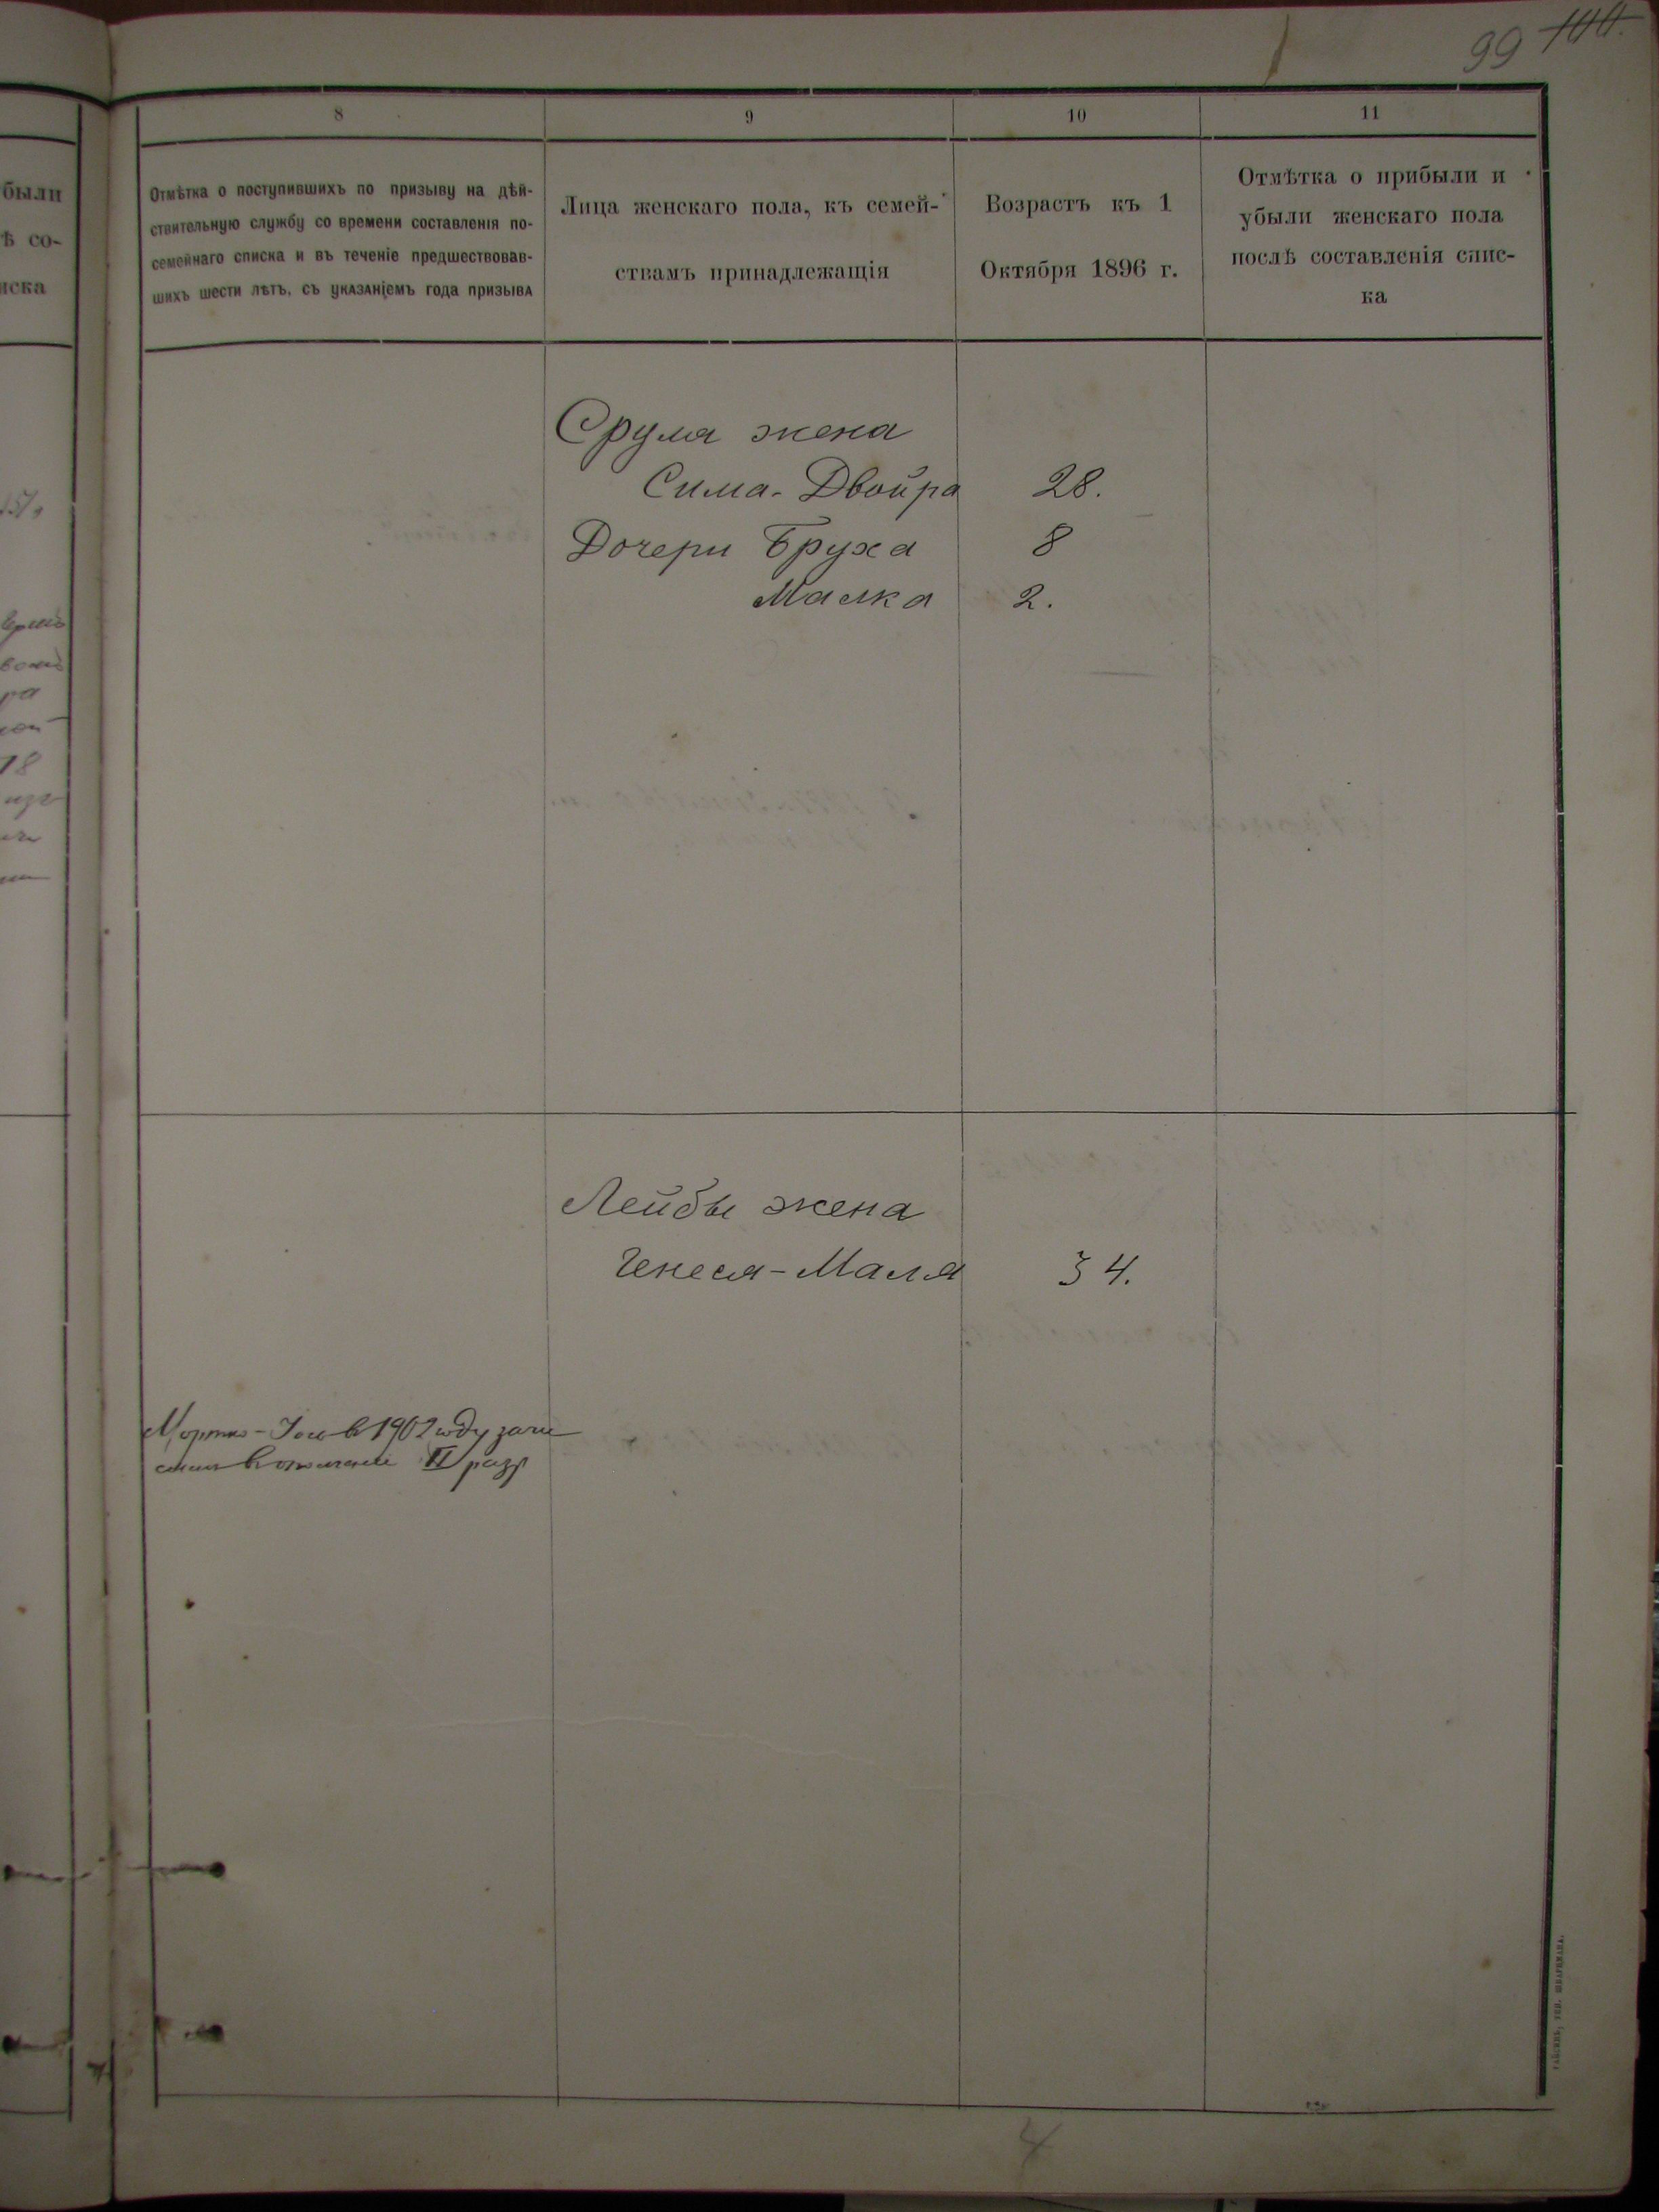 99 100.
8 9 10 11
были
ѣ со-
иска
Отмѣтка о поступившихъ по призыву на дѣй-
ствительную службу со времени составленія по-
семейнаго списка и въ теченіе предшествовав-
шихъ шести лѣтъ, съ указаніемъ года призыва
Лица женскаго пола, къ семей-
ствамъ принадлежащія
Возрастъ къ 1
Октября 1896 г.
Отмѣтка о прибыли и
убыли женскаго пола
послѣ составленія спис-
ка
Срула жена
Сима-Двойра 28.
Дочери Бруха 8
Малка 2.
18
Лейбы жена
Генеся-Маля 34.
в 1902 году зачи
II разр
4